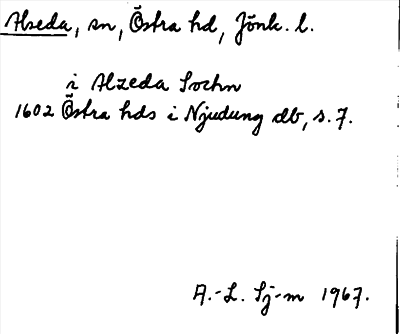 Alseda, sn, Östra hd, Jönk. l.
i Alzeda Sochn
1602 Östra hds i Njudung db, s. 7.
A.-L. Sj-m 1967.